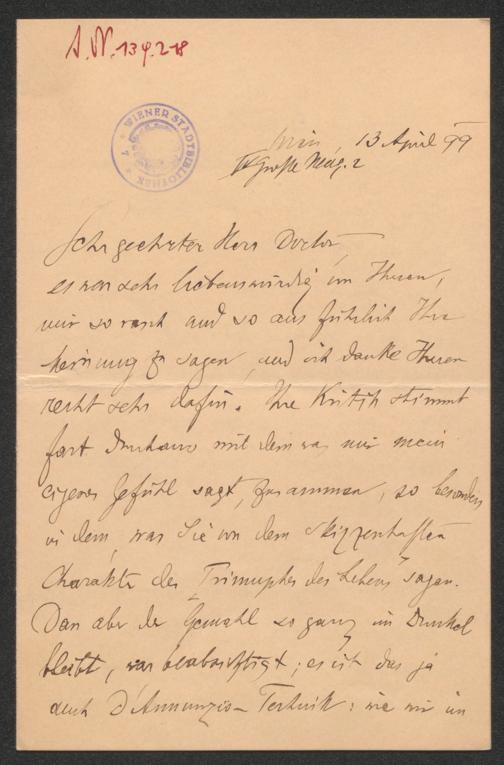 J.N. 134.218
WIENER STADTBIBLIOTHEK
Wien, 13 April 99
IV Große Neug. 2
Sehr geehrter Herr Doctor,
es war sehr liebenswürdig von Ihnen,
mir so rasch und so ausführlich Ihre
Meinung zu sagen, und ich danke Ihnen
recht sehr dafür. Ihre Kritik stimmt
fast durchaus mit dem was mir mein
eigenes Gefühl sagt, zusammen, so besonders
in dem, was Sie von dem skizzenhaften
Charakter des „Triumphes des Lebens" sagen.
Dass aber der Gemahl so ganz im Dunkel
bleibt, war beabsichtigt; es ist das ja
auch D'Annunzio-Technik: wie wir im